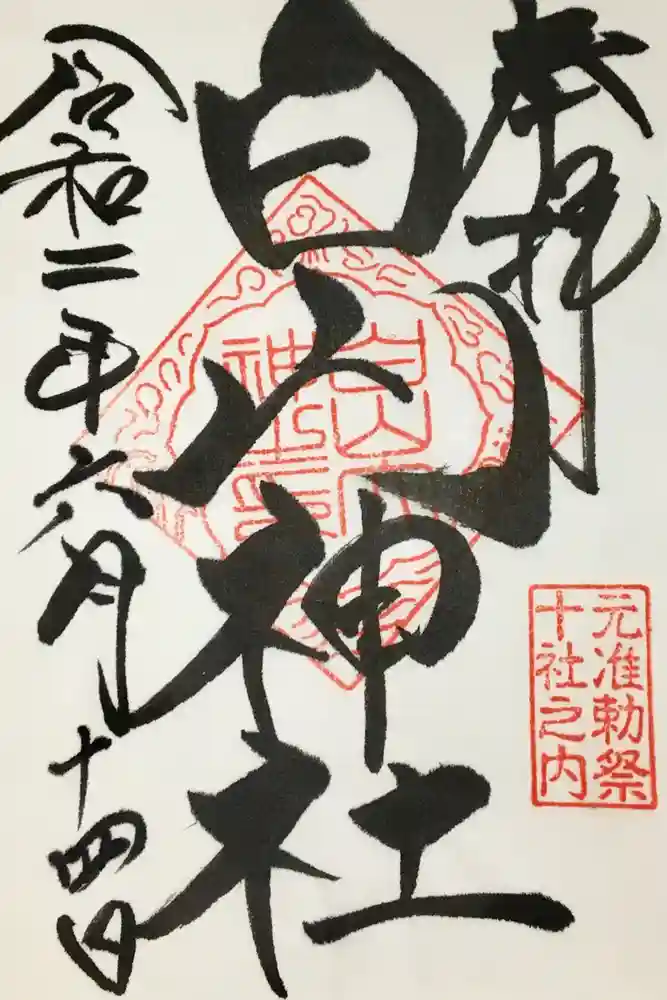 奉拝
元准勅祭
十社之内
白山神社
令和二年六月十四日